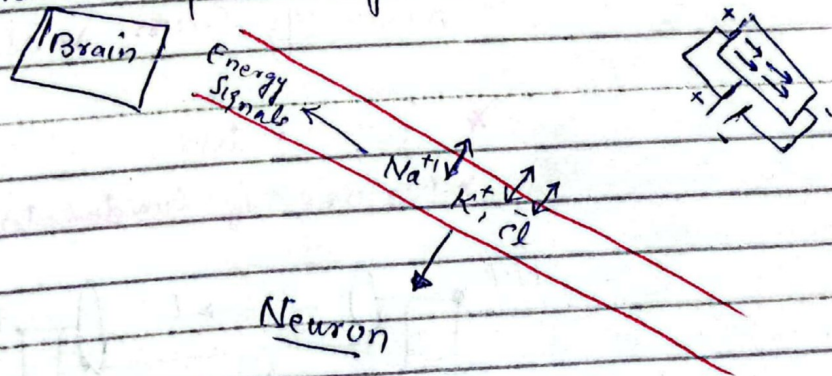 Brain
Energy
Signals
Na⁺¹
K⁺,
Cl⁻
Neuron
+
-
+
-